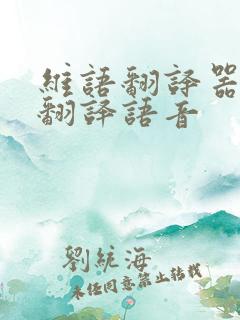 維語翻譯器
翻譯語音
劉統海
未經同意禁止轉載